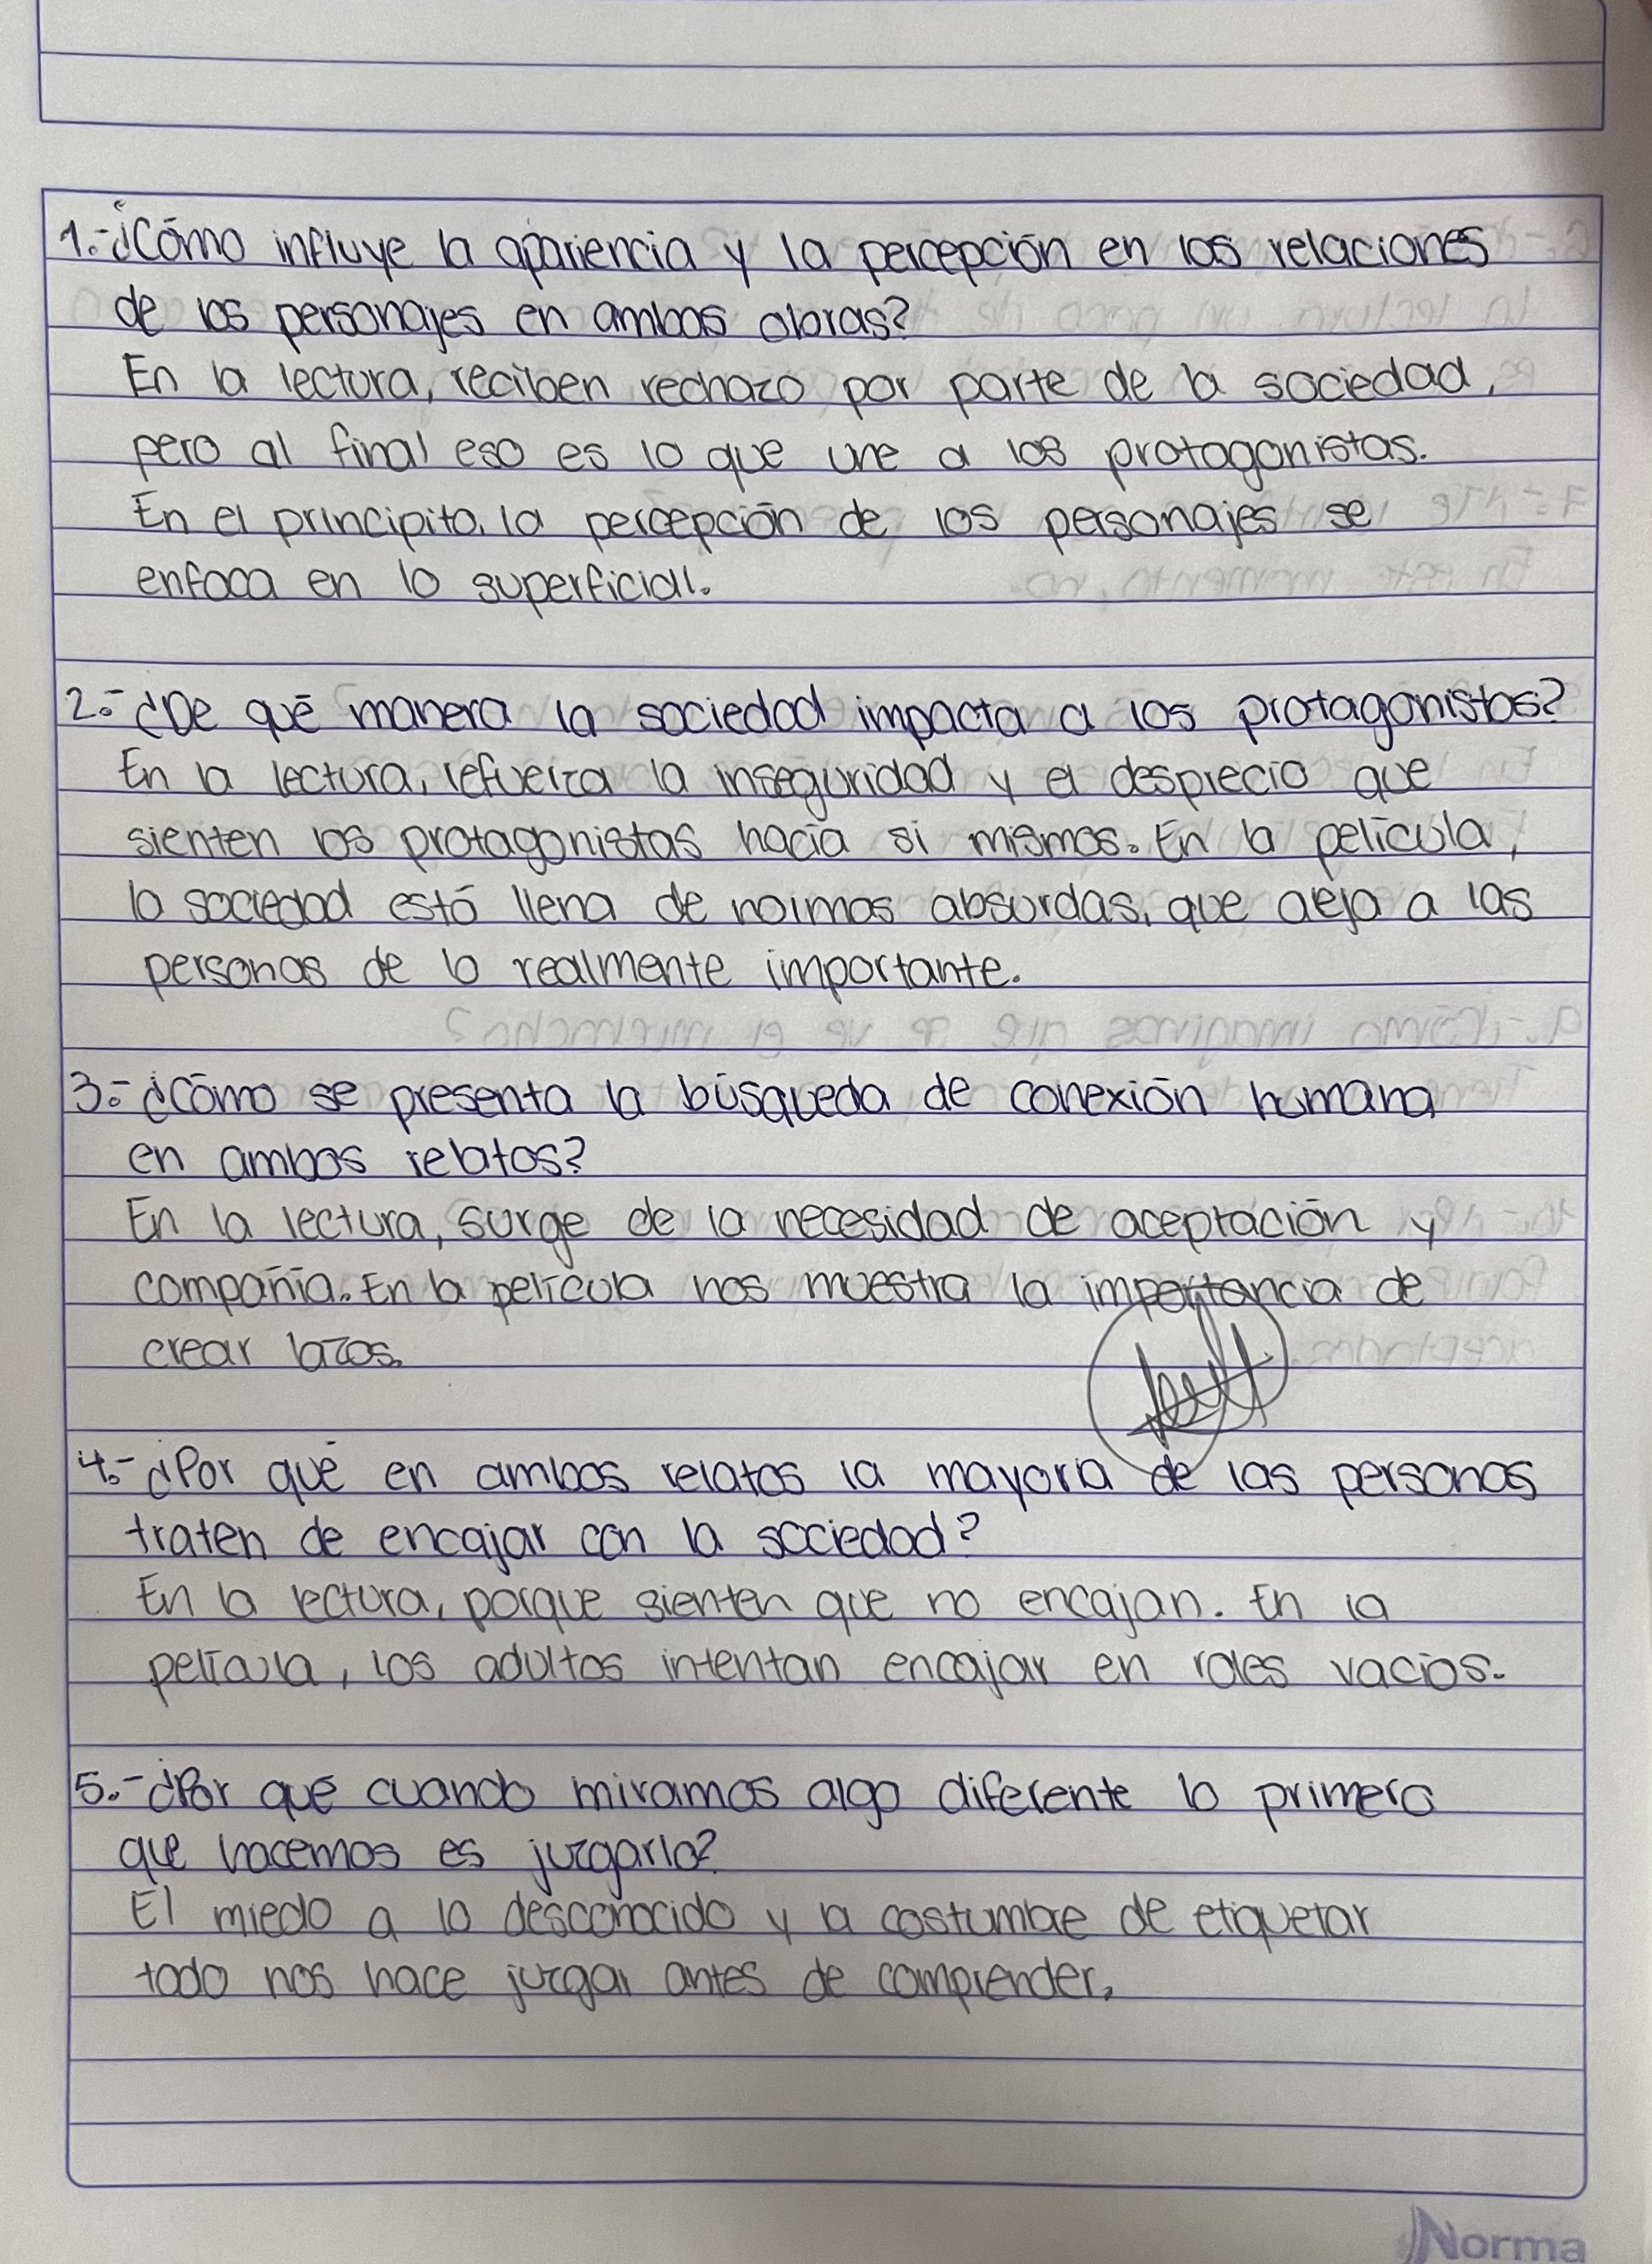 1.-¿Cómo influye la apariencia y la percepción en las relaciones
de los personajes en ambas obras?
En la lectura, reciben rechazo por parte de la sociedad,
pero al final eso es lo que une a los protagonistas.
En el principito, la percepción de los personajes se
enfoca en lo superficial.
2.-¿De qué manera la sociedad impacta a los protagonistas?
En la lectura, refuerza la inseguridad y el desprecio que
sienten los protagonistas hacía si mismos. En la película,
la sociedad está llena de normas absurdas, que aleja a las
personas de lo realmente importante.
3.-¿Cómo se presenta la búsqueda de conexión humana
en ambos relatos?
En la lectura, surge de la necesidad de aceptación y
compañía. En la película nos muestra la importancia de
crear lazos.
4.-¿Por qué en ambos relatos la mayoría de las personas
traten de encajar con la sociedad?
En la lectura, porque sienten que no encajan. En la
película, los adultos intentan encajar en roles vacíos.
5.-¿Por qué cuando miramos algo diferente lo primero
que hacemos es juzgarlo?
El miedo a lo desconocido y la costumbre de etiquetar
todo nos hace juzgar antes de comprender.
Norma